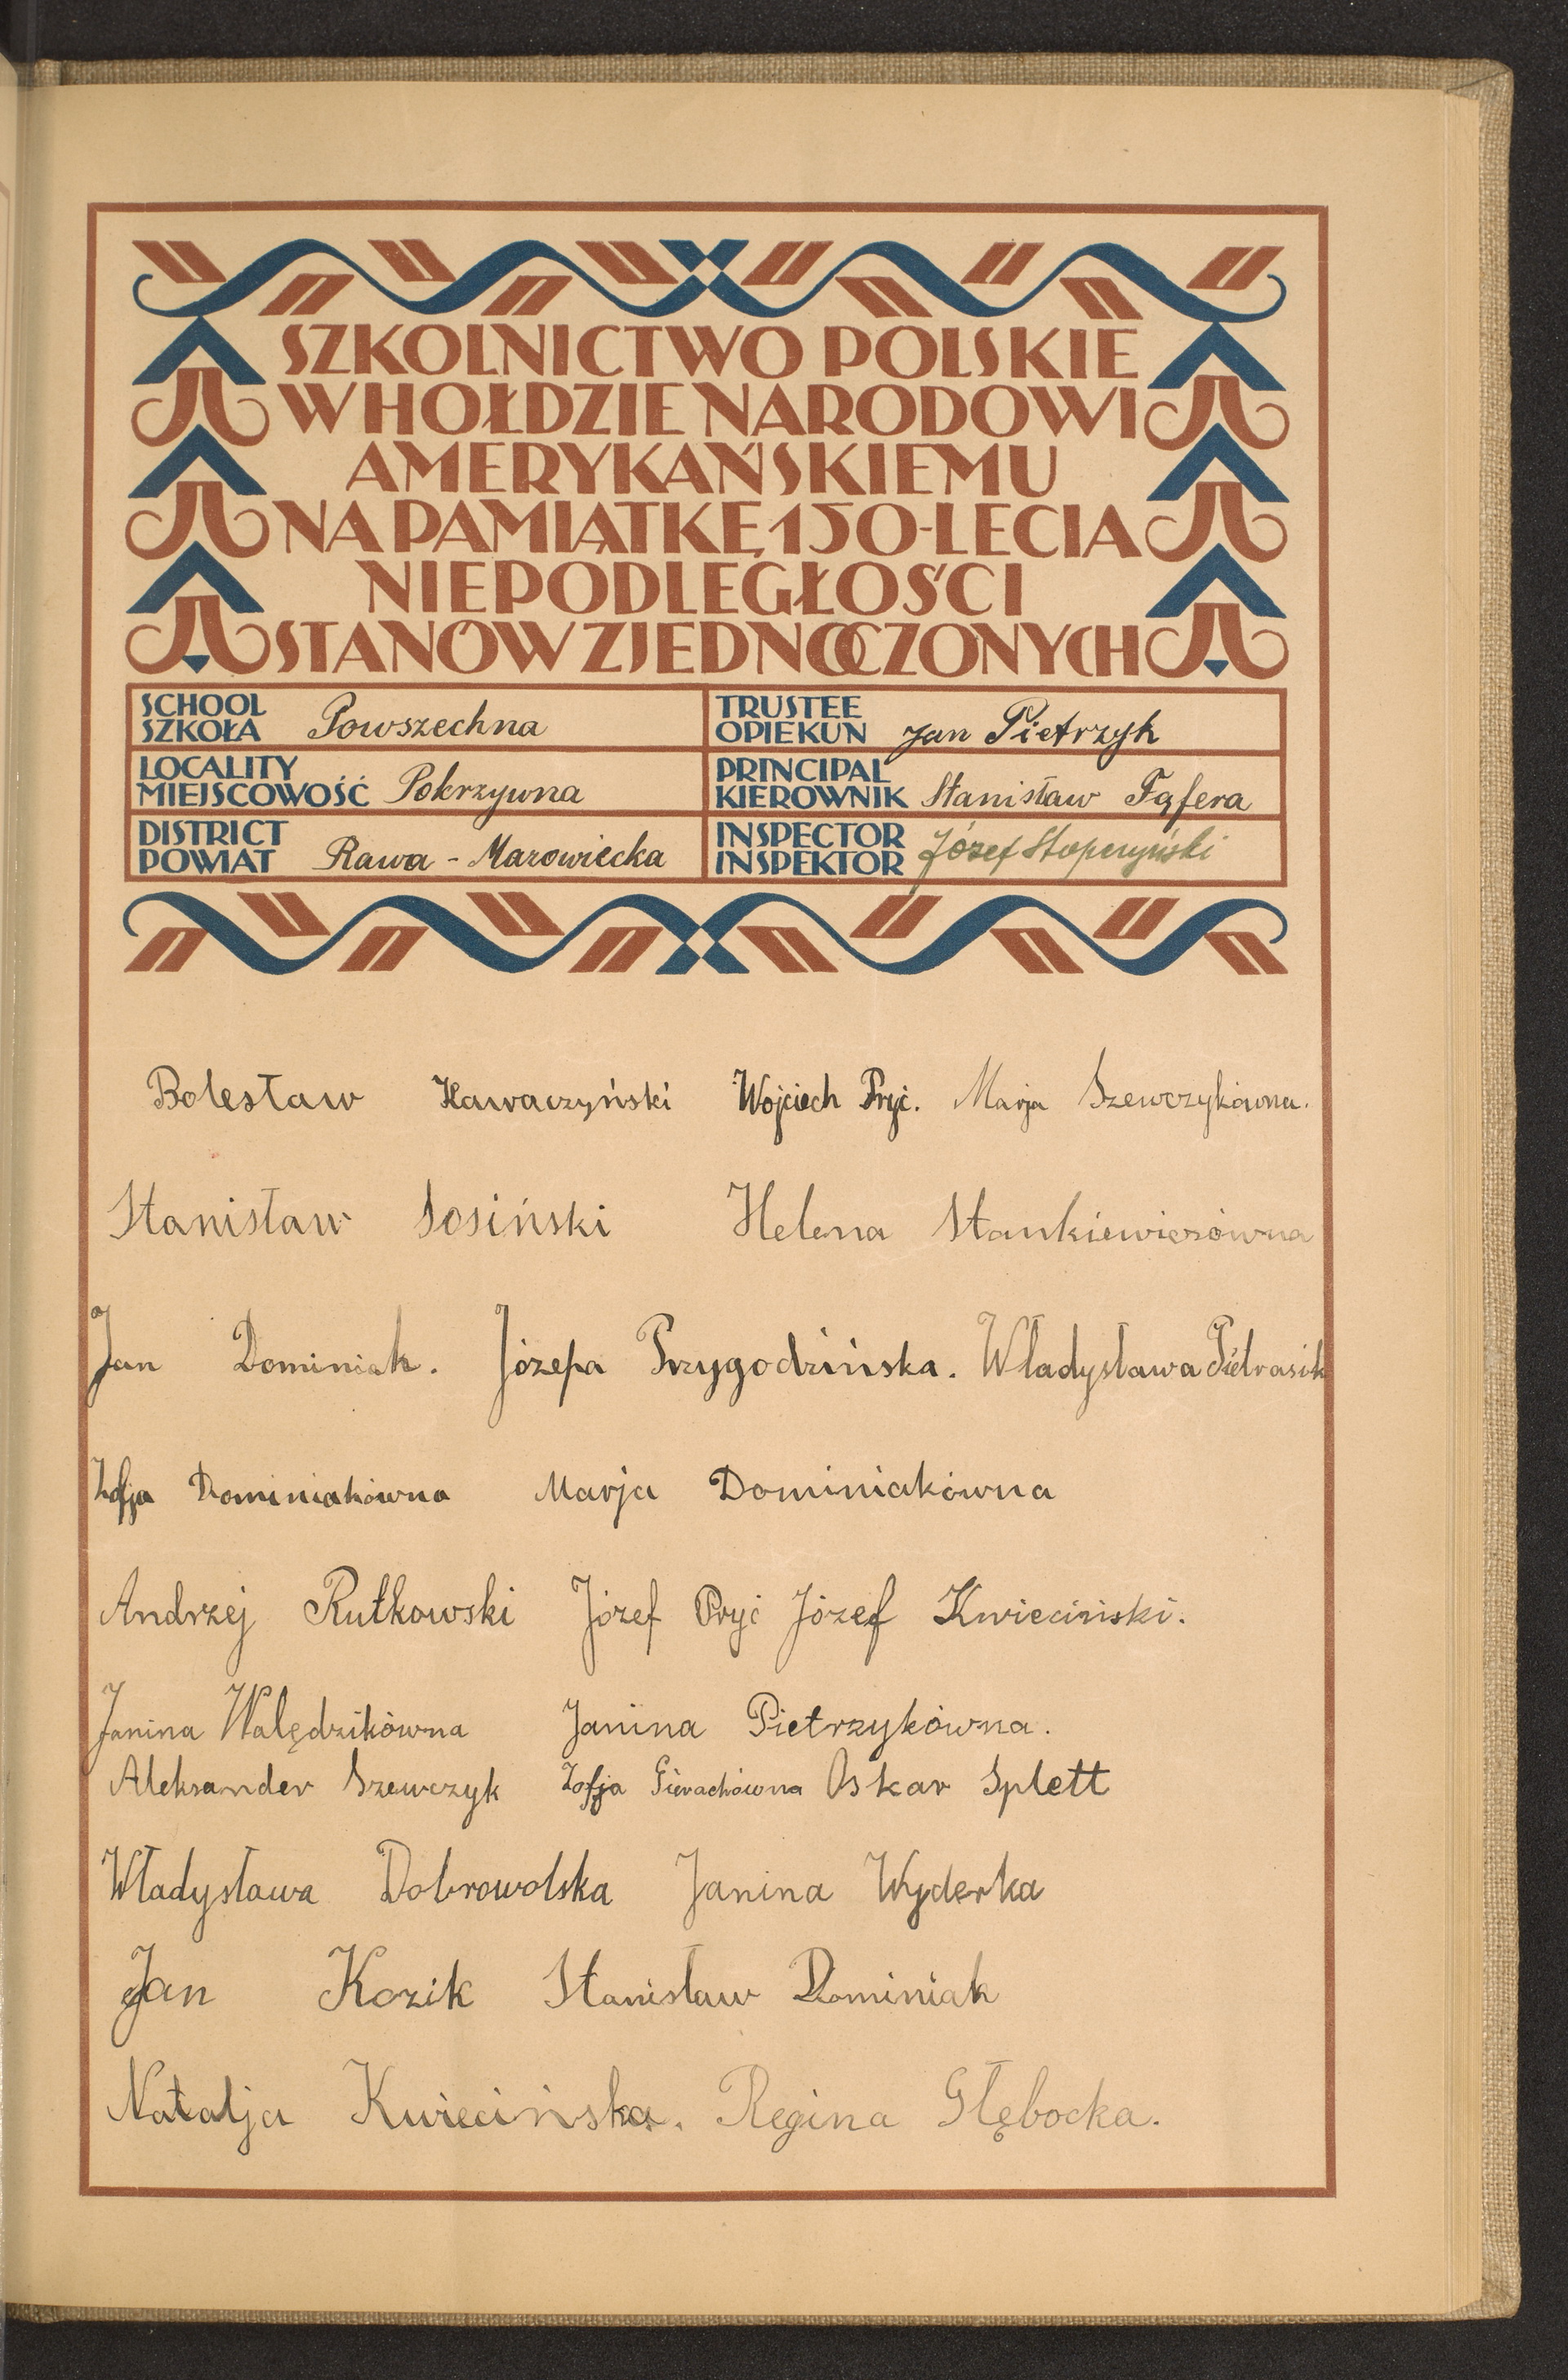 SZKOLNICTWO POLSKIE
W HOŁDZIE NARODOWI
AMERYKAŃSKIEMU
NA PAMIĄTKĘ 150-LECIA
NIEPODLEGŁOŚCI
STANÓW ZJEDNOCZONYCH
SCHOOL
SZKOŁA Powszechna
TRUSTEE
OPIEKUN Jan Pietrzyk
LOCALITY
MIEJSCOWOŚĆ Pokrzywna
PRINCIPAL
KIEROWNIK Stanisław Fąfera
DISTRICT
POWIAT Rawa - Mazowiecka
INSPECTOR
INSPEKTOR Józef
Bolesław Wojciech Pryć. Marja Szewczykówna.
Stanisław Sosiński Helena Stankiewiczówna
Jan Dominiak. Józefa Przygodzińska. Władysława Pietrasik
Zofja Dominiakówna Marja Dominiakówna
Andrzej Rutkowski Józef Pryć Józef Kwieciński.
Janina Walędzikówna Janina Pietrzykówna.
Aleksander Szewczyk Zofja Gierachówna Oskar Splett
Władysława Dobrowolska Janina Wyderka
Jan Kozik Stanisław Dominiak
Natalja Kwiecińska. Regina Głębocka.